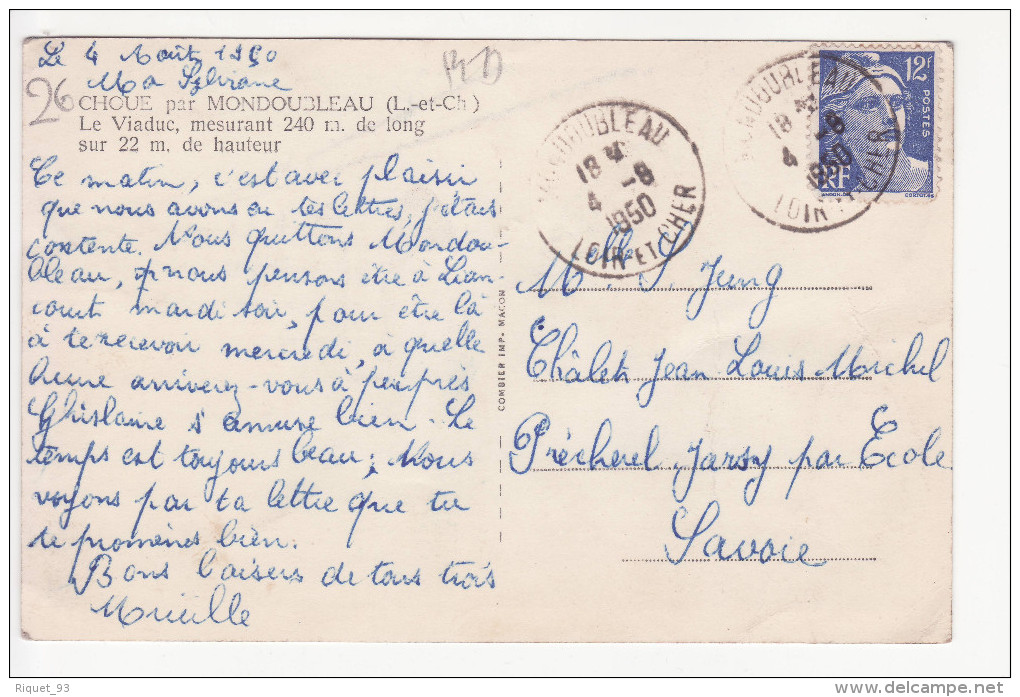 Le 4 Août 1950
Ma Sylviane
26
CHOUE par MONDOUBLEAU (L.-et-Ch)
Le Viaduc, mesurant 240 m. de long
sur 22 m. de hauteur
Ce matin, c'est avec plaisir
que nous avons eu tes lettres, j'étais
contente. Nous quittons Mondou-
bleau, nous pensons être à Lian-
court mardi soir, pour être là
à te recevoir mercredi, a quelle
heure arriverez-vous à peu près
Ghislaine s'amuse bien. Le
temps est toujours beau; Nous
voyons par ta lettre que tu
te promènes bien.
Bons baisers de tous trois
Mireille
COMBIER IMP- MACON
MONDOUBLEAU
18 H
4 -8
1950
LOIR-ET-CHER
MONDOUBLEAU
18 H
4 -8
1950
LOIR-ET-CHER
12F
POSTES
RF
Mlle S. Jung
Châlet Jean Louis Morchel
Précherel Jarsy par Ecole
Savoie
Riquet_93
www.delcampe.net